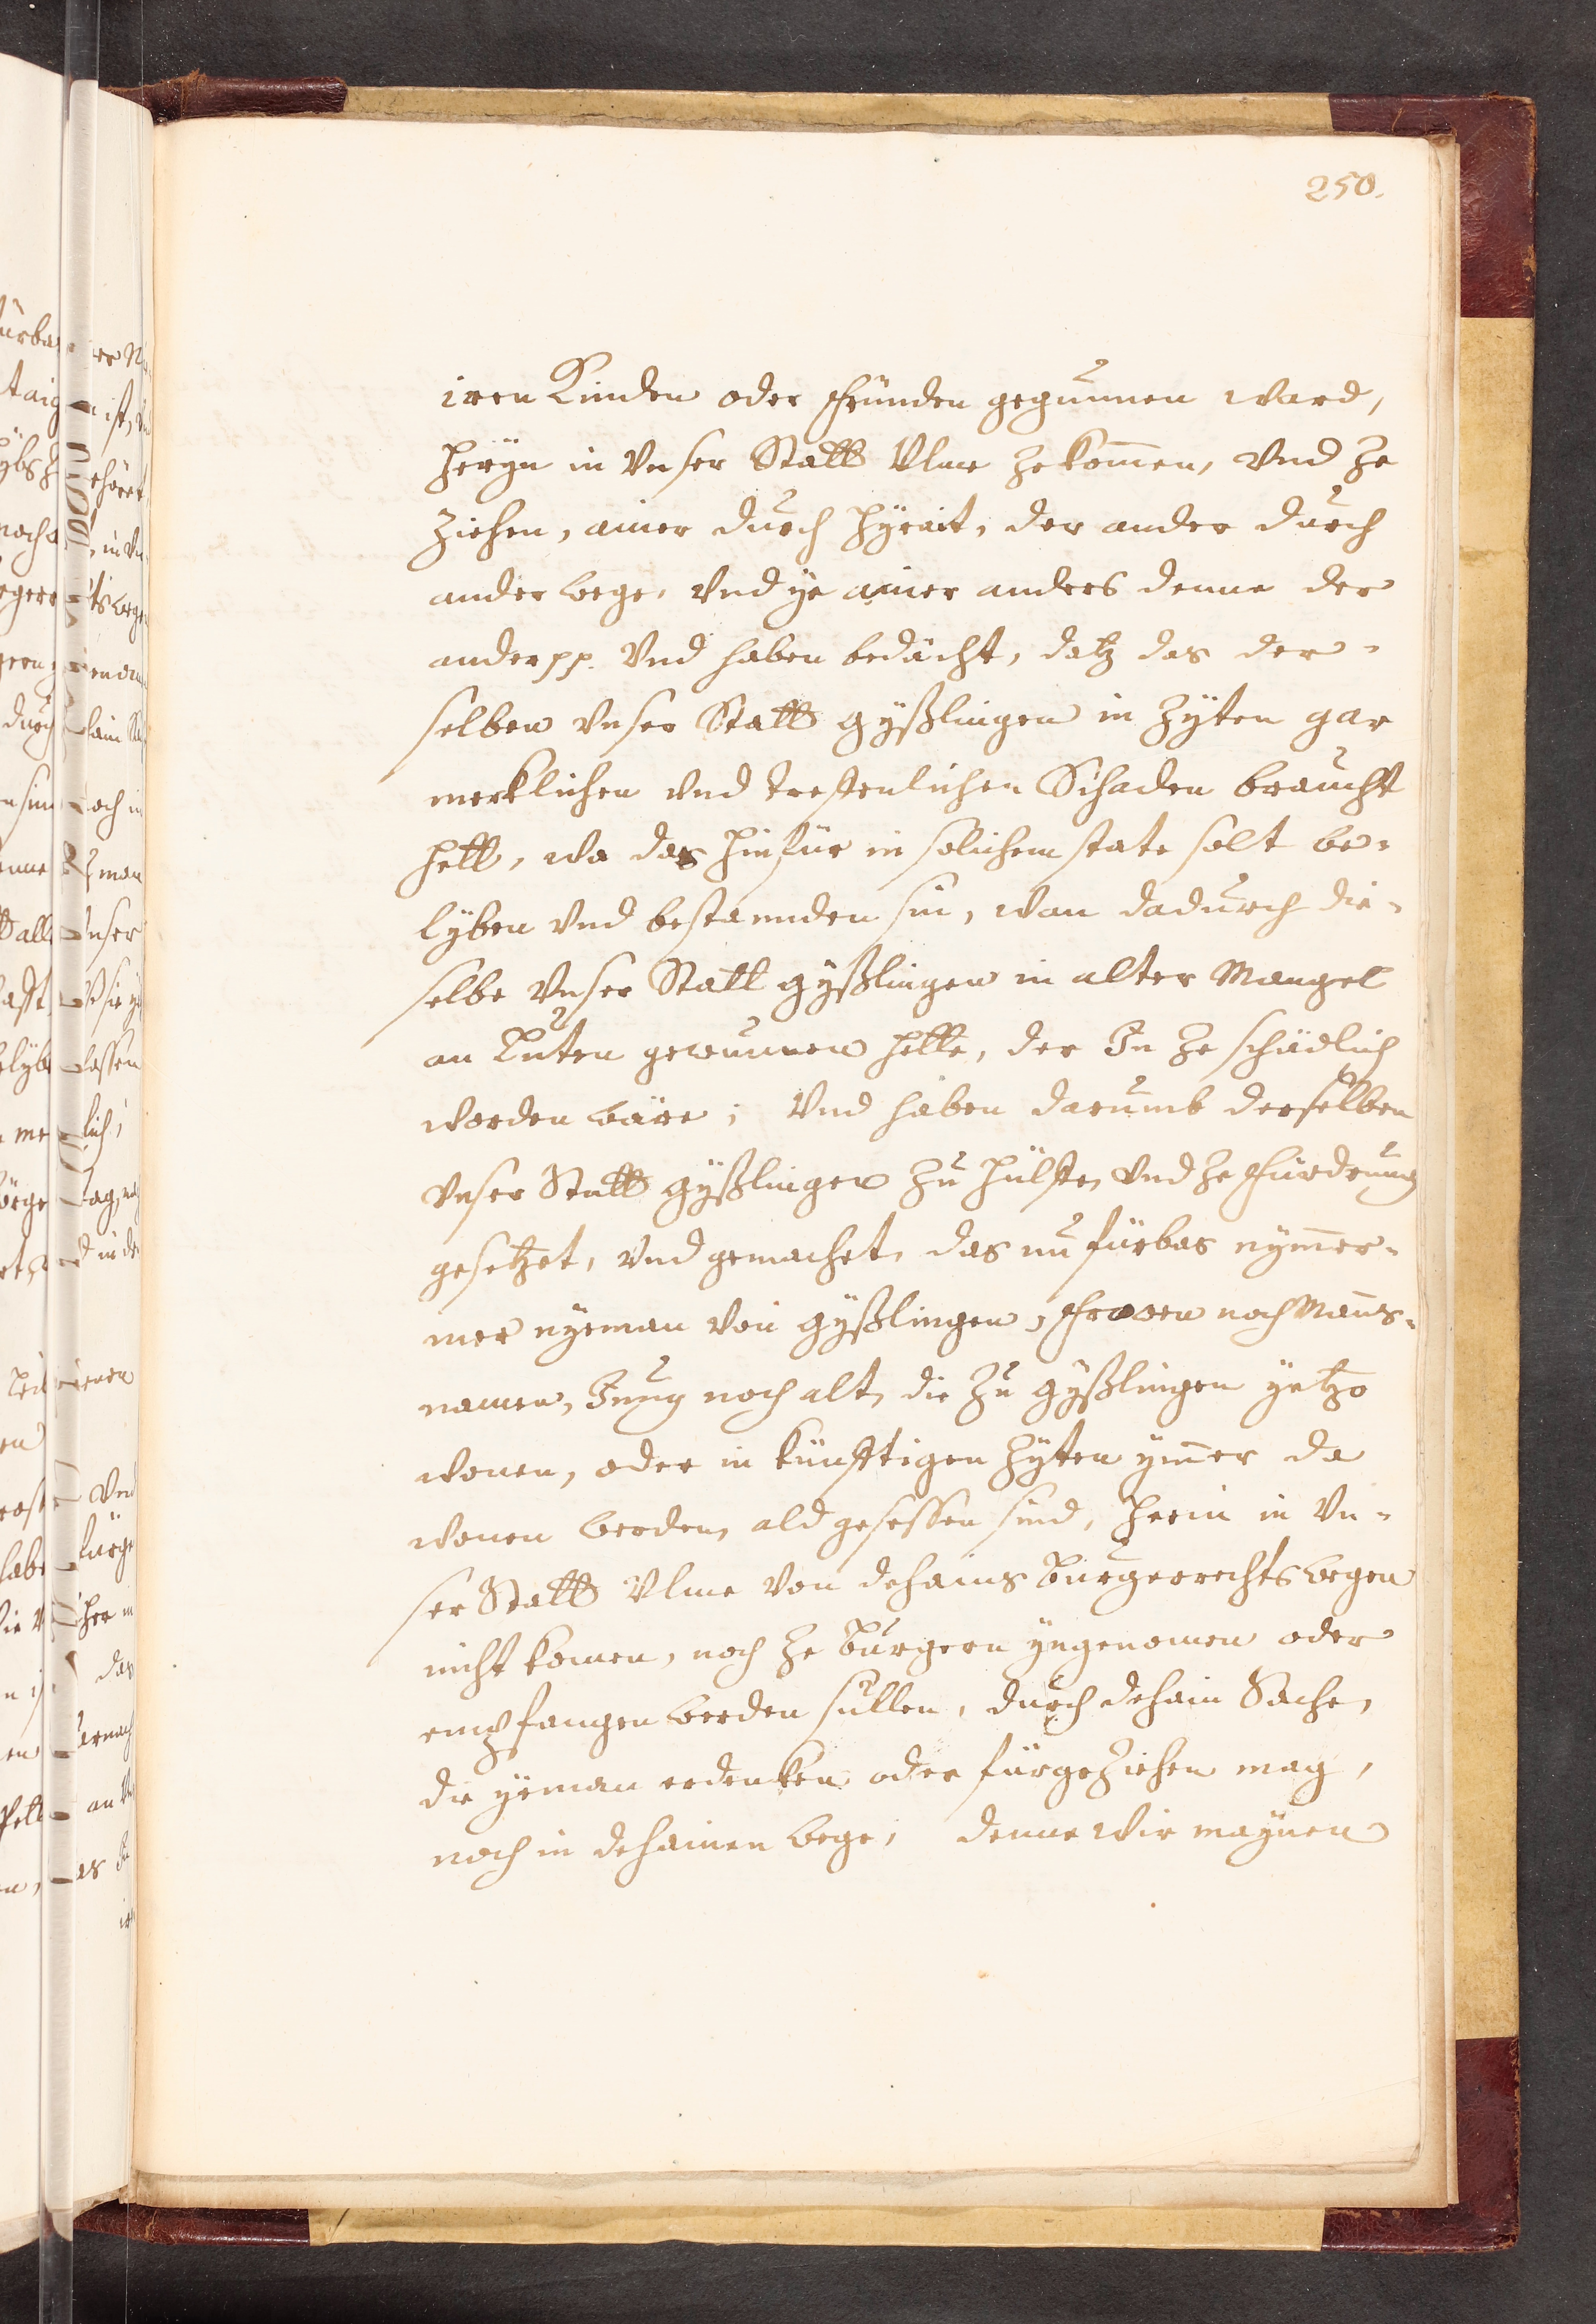 250.
iren Kinden oder fründen gegunnen ward,
heryn in unser Statt Ulme ze kom̄en, und ze
ziehen, ainer durch hyrait, der ander durch
ander wege, und ye ainer anders denne der
ander pp. Und haben bedächt, datz das der-
selben unser Statt Gyßlingen in Zyten gar
merklichen und treffenlichen Schaden braucht
hett, wa das hinfür in solichem state solt be-
lyben und bestannden sin, wan dadurch die-
selbe unser Statt Gyßlingen in alter Mangel
an Luten gewunnen hette, der In ze schädlich
worden wäre; Und haben darumb derselben
unser Statt Gyßlingen zu hülffe, und ze fürdrung
gesetzet, und gemachet, das nu fürbas nym̄er-
mer nyeman von Gyßlingen, frowen noch Manns-
namen, Jung noch alt, die zu Gyßlingen yetzo
wonen, oder in künfftigen Zyten ym̄er da
wonen werden, ald gesessen sind, herin in un-
ser Statt Ulme von dehains Burgerrechts wegen
nicht komen, noch ze Burgern yngenomen oder
empfangen werden sullen, durch dehain Sache,
die yeman erdenken oder fürgeziehen mag,
noch in dehainen wege; denne wir maynen